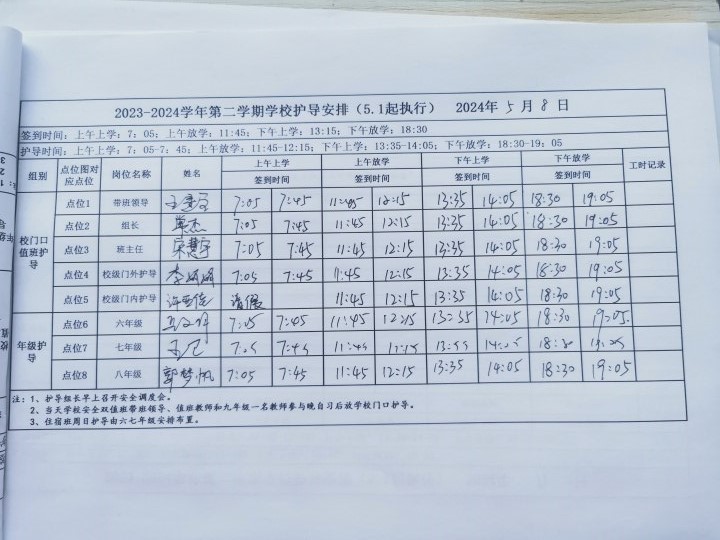 2023-2024学年第二学期学校护导安排（5.1起执行） 2024年 5 月 8 日
签到时间：上午上学：7：05；上午放学：11:45；下午上学：13:15；下午放学：18:30
护导时间：上午上学：7：05-7：45；上午放学：11:45-12:15；下午上学：13:35-14:05；下午放学：18:30-19：05
组别 点位图对应点位 岗位名称 姓名 上午上学 上午放学 下午上学 下午放学 工时记录
签到时间 签到时间 签到时间 签到时间
校门口值班护导
点位1 带班领导 7:05 7:45 11:45 12:15 13:35 14:05 18:30 19:05
点位2 组长 7:05 7:45 11:45 12:15 13:35 14:05 18:30 19:05
点位3 班主任 宋慧宇 7:05 7:45 11:45 12:15 13:35 14:05 18:30 19:05
点位4 校级门外护导 7:05 7:45 11:45 12:15 13:35 14:05 18:30 19:05
点位5 校级门内护导 请假 11:45 12:15 13:35 14:05 18:30 19:05
年级护导
点位6 六年级 7:05 7:45 11:45 12:15 13:35 14:05 18:30 19:05
点位7 七年级
点位8 八年级 郭梦帆 7:05 7:45 11:45 12:15 13:35 14:05 18:30 19:05
注：1、护导组长早上召开安全调度会。
2、当天学校安全双值班带班领导、值班教师和九年级一名教师参与晚自习后放学校门口护导。
3、住宿班周日护导由六七年级安排布置。